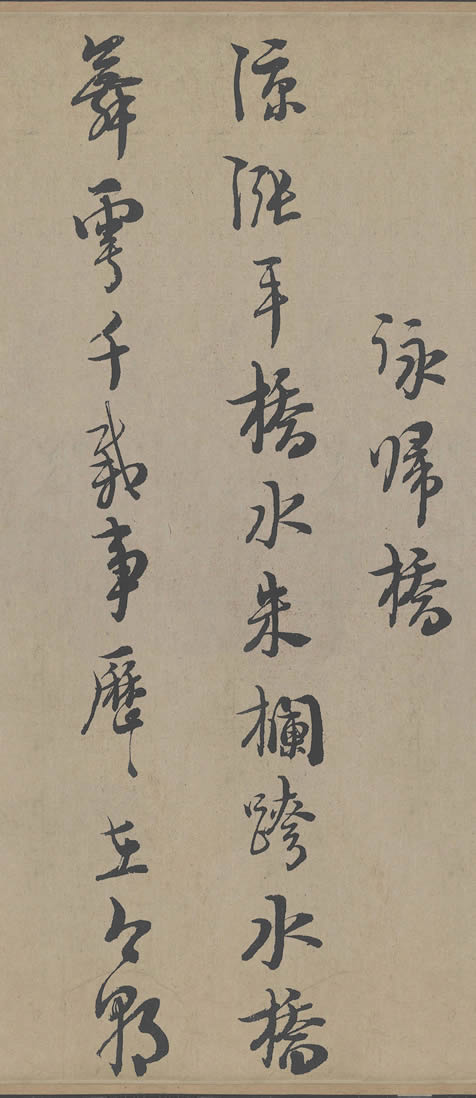 詠歸橋
渌漲平橋水朱欄跨水橋
舞雩千載事歷〻在今朝